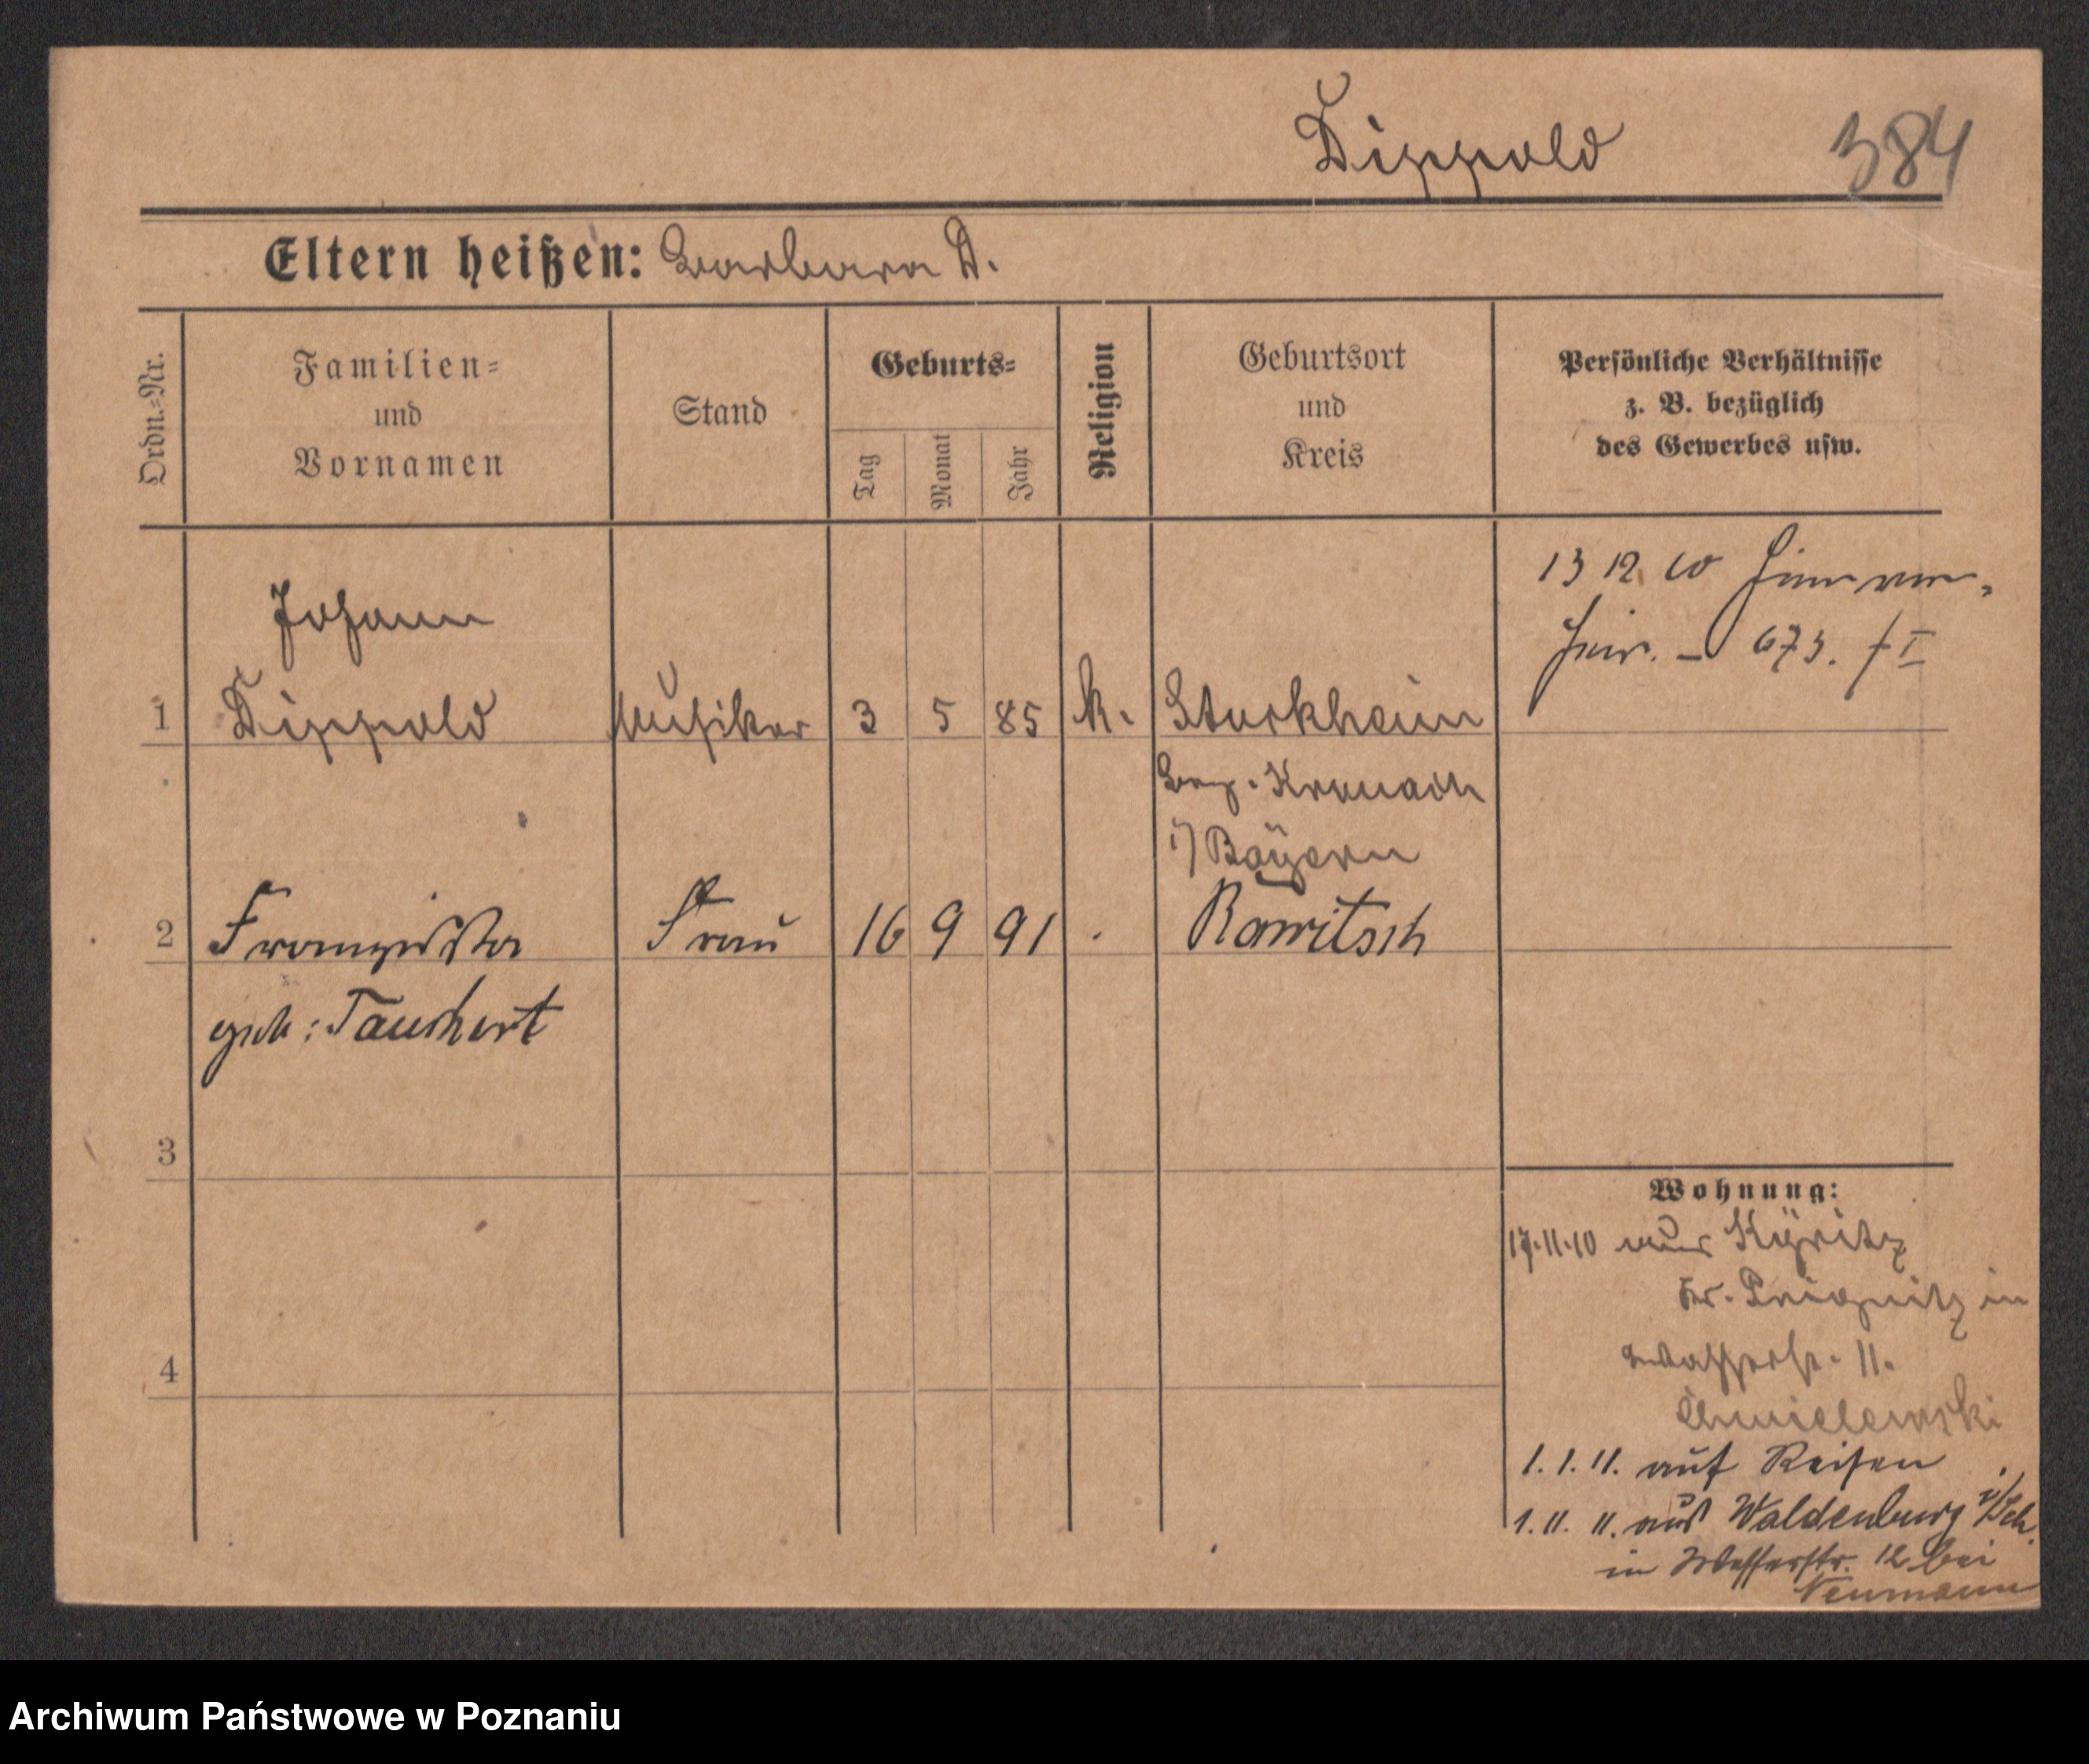 Dippold
384
Eltern heißen: Barbara D.
Ordn.=Nr.
Familien=
und
Vornamen
Stand
Geburts=
Tag
Monat
Jahr
Religion
Geburtsort
und
Kreis
Persönliche Verhältnisse
z. B. bezüglich
des Gewerbes usw.
13 12 10
673. f I
Johann
1 Dippold Musiker 3 5 85 k. Stockheim
Bez. Kronach
i/ Bayern
2 Franziska Frau 16 9 91 Rawitsch
geb: Tauchert
3
4
Wohnung:
17.11.10 aus Kyritz
Kr. Prignitz in
Wasserstr. 11.
Chmielewski
1. 1. 11. auf Reisen
1. 11. 11. aus Waldenburg i/Sch
in Wasserstr. 12 bei
Neumann
Archiwum Państwowe w Poznaniu